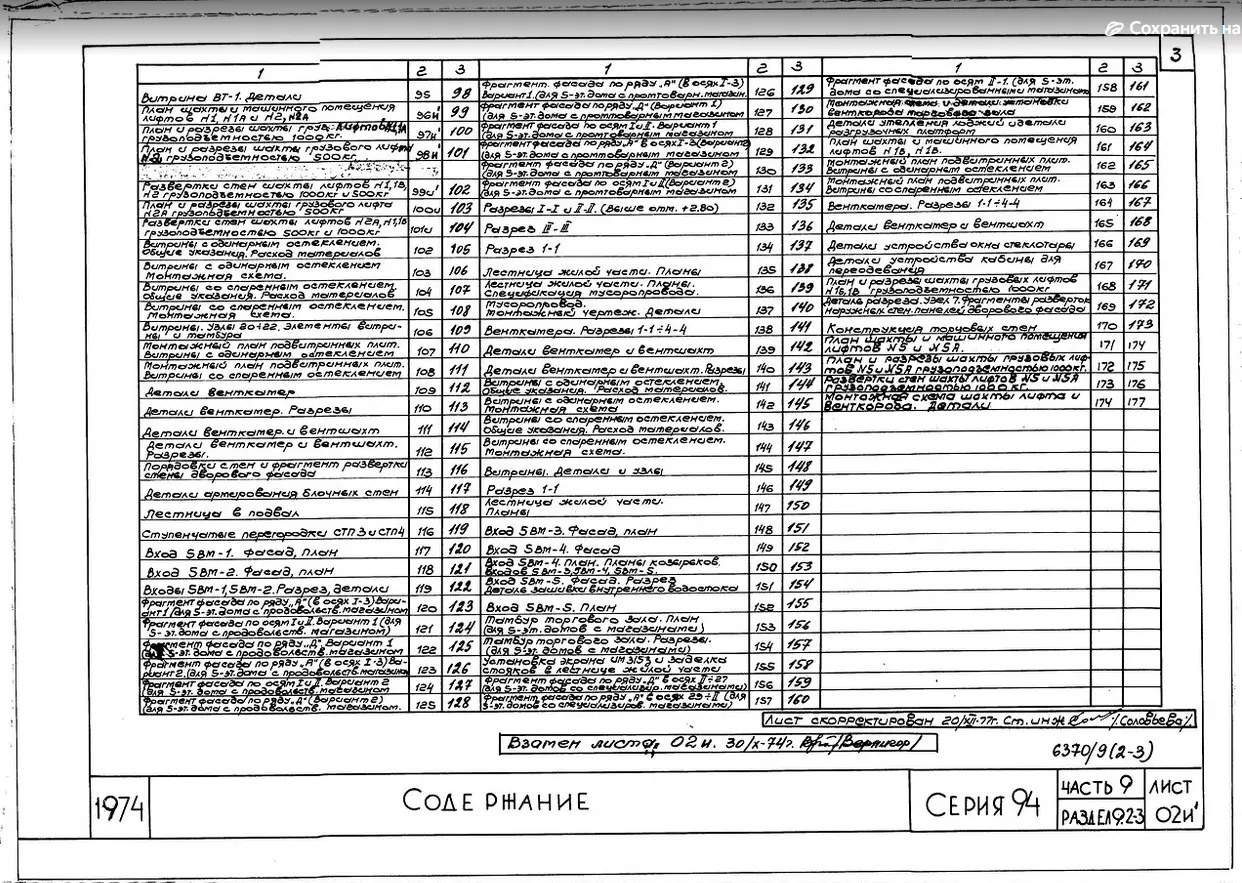 Сохранить на
3
1 2 3
Витрина ВТ-1. Детали 95 98
План шахты и машинного помещения
лифтов Н1, Н1А и Н2, Н2А 96и' 99
План и разрезы шахты груз. лифтов Н1,1А
грузоподъемностью 1000 кг. 97и' 100
План и разрезы шахты грузового лифта
Н2 грузоподъемностью 500кг. 98и' 101
Развертки стен шахты лифтов Н1,1В,
Н2 грузоподъемностью 1000кг и 500кг 99и' 102
План и разрезы шахты грузового лифта
Н2А грузоподъемностью 500кг 100и 103
Развертки стен шахты лифтов Н2А, Н1,1В
грузоподъемностью 500кг и 1000кг 101и 104
Витрины с одинарным остеклением.
Общие указания. Расход материалов 102 105
Витрины с одинарным остеклением
Монтажная схема. 103 106
Витрины со спаренным остеклением.
Общие указания. Расход материалов 104 107
Витрины со спаренным остеклением.
Монтажная схема. 105 108
Витрины. Узлы 20÷22, Элементы витри-
ны и тамбура 106 109
Монтажный план подвитринных плит.
Витрины с одинарным остеклением 107 110
Монтажный план подвитринных плит.
Витрины со спаренным остеклением 108 111
Детали венткамер 109 112
Детали венткамер. Разрезы 110 113
Детали венткамер и вентшахт 111 114
Детали венткамер и вентшахт.
Разрезы. 112 115
Порядовки стен и фрагмент развертки
стены дворового фасада 113 116
Детали армирования блочных стен 114 117
Лестница в подвал 115 118
Ступенчатые перегородки СТП3 и СТП4 116 119
Вход 5ВМ-1. Фасад, план 117 120
Вход 5ВМ-2. Фасад, план 118 121
Входы 5ВМ-1, 5ВМ-2. Разрез, детали 119 122
Фрагмент фасада по ряду „А" (в осях I-3) Вари-
ант 1 (для 5-эт. дома с продовольств. магазином 120 123
Фрагмент фасада по осям I и II. Вариант 1 (для
5-эт. дома с продовольств. магазином) 121 124
Фрагмент фасада по ряду „Д" Вариант 1
(для 5-эт. дома с продовольств. магазином 122 125
Фрагмент фасада по ряду „А" (в осях I-3) Ва-
риант 2. (для 5-эт. дома с продовольств. магазином 123 126
Фрагмент фасада по осям I и II. Вариант 2
(для 5-эт. дома с продовольств. магазином 124 127
Фрагмент фасада по ряду „Д" (Вариант 2)
(для 5-эт. дома с продовольств. магазином. 125 128
1 2 3
Фрагмент. фасада по ряду „А" (в осях I-3)
Вариант 1. (для 5-эт. дома с промтоварн. магазин. 126 129
Фрагмент фасада по ряду „Д" (Вариант 1)
(для 5-эт. дома с промтоварным магазином 127 130
Фрагмент фасада по осям I и II. Вариант 1
(для 5-эт. дома с промтоварным магазином 128 131
Фрагмент фасада по ряду „А" в осях I-3 (Вариант 2)
(для 5-эт. дома с промтоварным магазином) 129 132
Фрагмент фасада по ряду „Д" (Вариант 2)
(для 5-эт. дома с промтоварным магазином 130 133
Фрагмент фасада по осям I и II (Вариант 2)
(для 5-эт. дома с промтоварным магазином 131 134
Разрезы I-I и II-II. (Выше отм. +2.80) 132 135
Разрез III-III 133 136
Разрез 1-1 134 137
Лестница жилой части. Планы 135 138
Лестница жилой части. Планы.
Спецификация мусоропровода. 136 139
Мусоропровод.
Монтажный чертеж. Детали 137 140
Венткамера. Разрезы 1-1÷4-4 138 141
Детали венткамер и вентшахт 139 142
Детали венткамер и вентшахт. Разрезы 140 143
Витрины с одинарным остеклением.
Общие указания. Расход материалов. 141 144
Витрины с одинарным остеклением.
Монтажная схема 142 145
Витрины со спаренным остеклением.
Общие указания. Расход материалов. 143 146
Витрины со спаренным остеклением.
Монтажная схема. 144 147
Витрины. Детали и узлы 145 148
Разрез 1-1 146 149
Лестница жилой части.
Планы 147 150
Вход 5ВМ-3. Фасад, план 148 151
Вход 5ВМ-4. Фасад 149 152
Вход 5ВМ-4. План. Планы козырьков.
Входов 5ВМ-3, 5ВМ-4, 5ВМ-5. 150 153
Вход 5ВМ-5. Фасад. Разрез
Деталь зашивки внутреннего водостока 151 154
Вход 5ВМ-5. План 152 155
Тамбур торгового зала. План
(для 5-эт. домов с магазинами) 153 156
Тамбур торгового зала. Разрезы.
(для 5-эт. домов с магазинами) 154 157
Установка экрана ИМ3/53 и заделка
стояков в лестнице жилой части 155 158
Фрагмент фасада по ряду „А" в осях II÷27
(для 5-эт. домов со специализир. магазинами) 156 159
Фрагмент фасада по ряду „А" в осях 25÷II (для
5-эт. домов со специализиров. магазинами) 157 160
1 2 3
Фрагмент фасада по осям II-1. (для 5-эт.
дома со специализированным магазином 158 161
Монтажная схема и детали установки
венткороба торгового зала 159 162
Детали утепления лоджий и детали
разгрузочных платформ 160 163
План шахты и машинного помещения
лифтов Н1Б, Н1В. 161 164
Монтажный план подвитринных плит.
Витрины с одинарным остеклением 162 165
Монтажный план подвитринных плит.
Витрины со спаренным остеклением 163 166
Венткамера. Разрезы 1-1÷4-4 164 167
Детали венткамер и вентшахт 165 168
Детали устройства окна стеклотары 166 169
Детали устройства кабины для
переодевания 167 170
План и разрезы шахты грузовых лифтов
Н1Б,1В грузоподъемностью 1000кг 168 171
Деталь разреза. Узел 7. Фрагменты разверток
наружных стен. панелей дворового фасада 169 172
Конструкция торцовых стен 170 173
План шахты и машинного помещения
лифтов N5 и N5А. 171 174
План и разрезы шахты грузовых лиф-
тов N5 и N5А грузоподъемностью 1000кг. 172 175
Развертки стен шахты лифтов N5 и N5А
грузоподъемностью 1000 кг. 173 176
Монтажная схема шахты лифта и
венткороба. Детали 174 177
Лист скорректирован 20/XII-77г. Ст. инж. /Соловьева/
Взамен листа „02и. 30/X-74г. /Вернигор/
6370/9(2-3)
1974
Содержание
Серия 94
Часть 9
Раздел 9.2-3
Лист
02и'